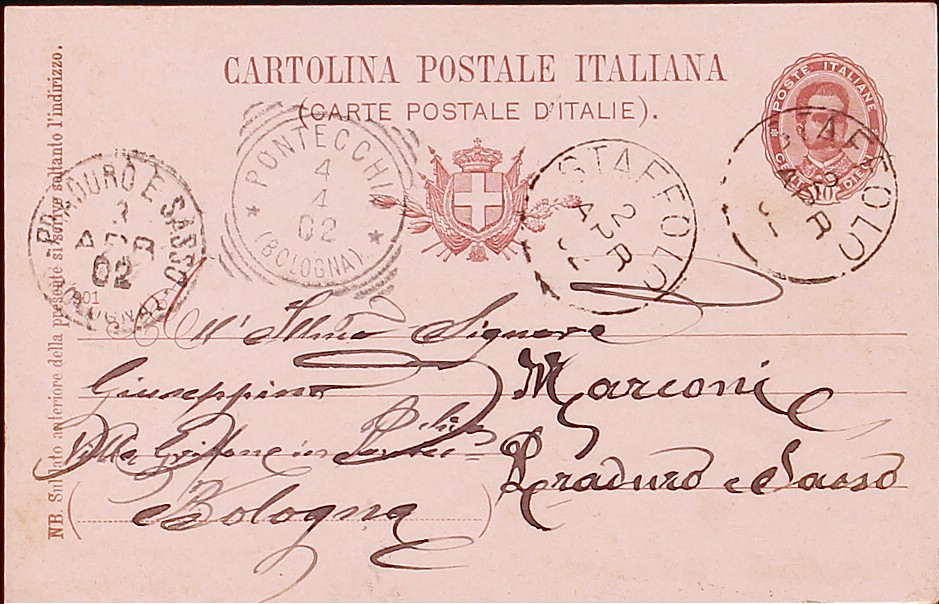 CARTOLINA POSTALE ITALIANA
(CARTE POSTALE D'ITALIE).
POSTE ITALIANE
PONTECCHIO
4
4
02
(BOLOGNA)
STAFFOLO
2
APR
STAFFOLO
APR
PRADURO E SASSO
3
APR
02
(BOLOGNA)
NB. Sul lato anteriore della presente si scrive soltanto l'indirizzo.
All' Illmo Signore
Giuseppino Marconi
Villa Grifone in
Praduro e Sasso
(Bologna)